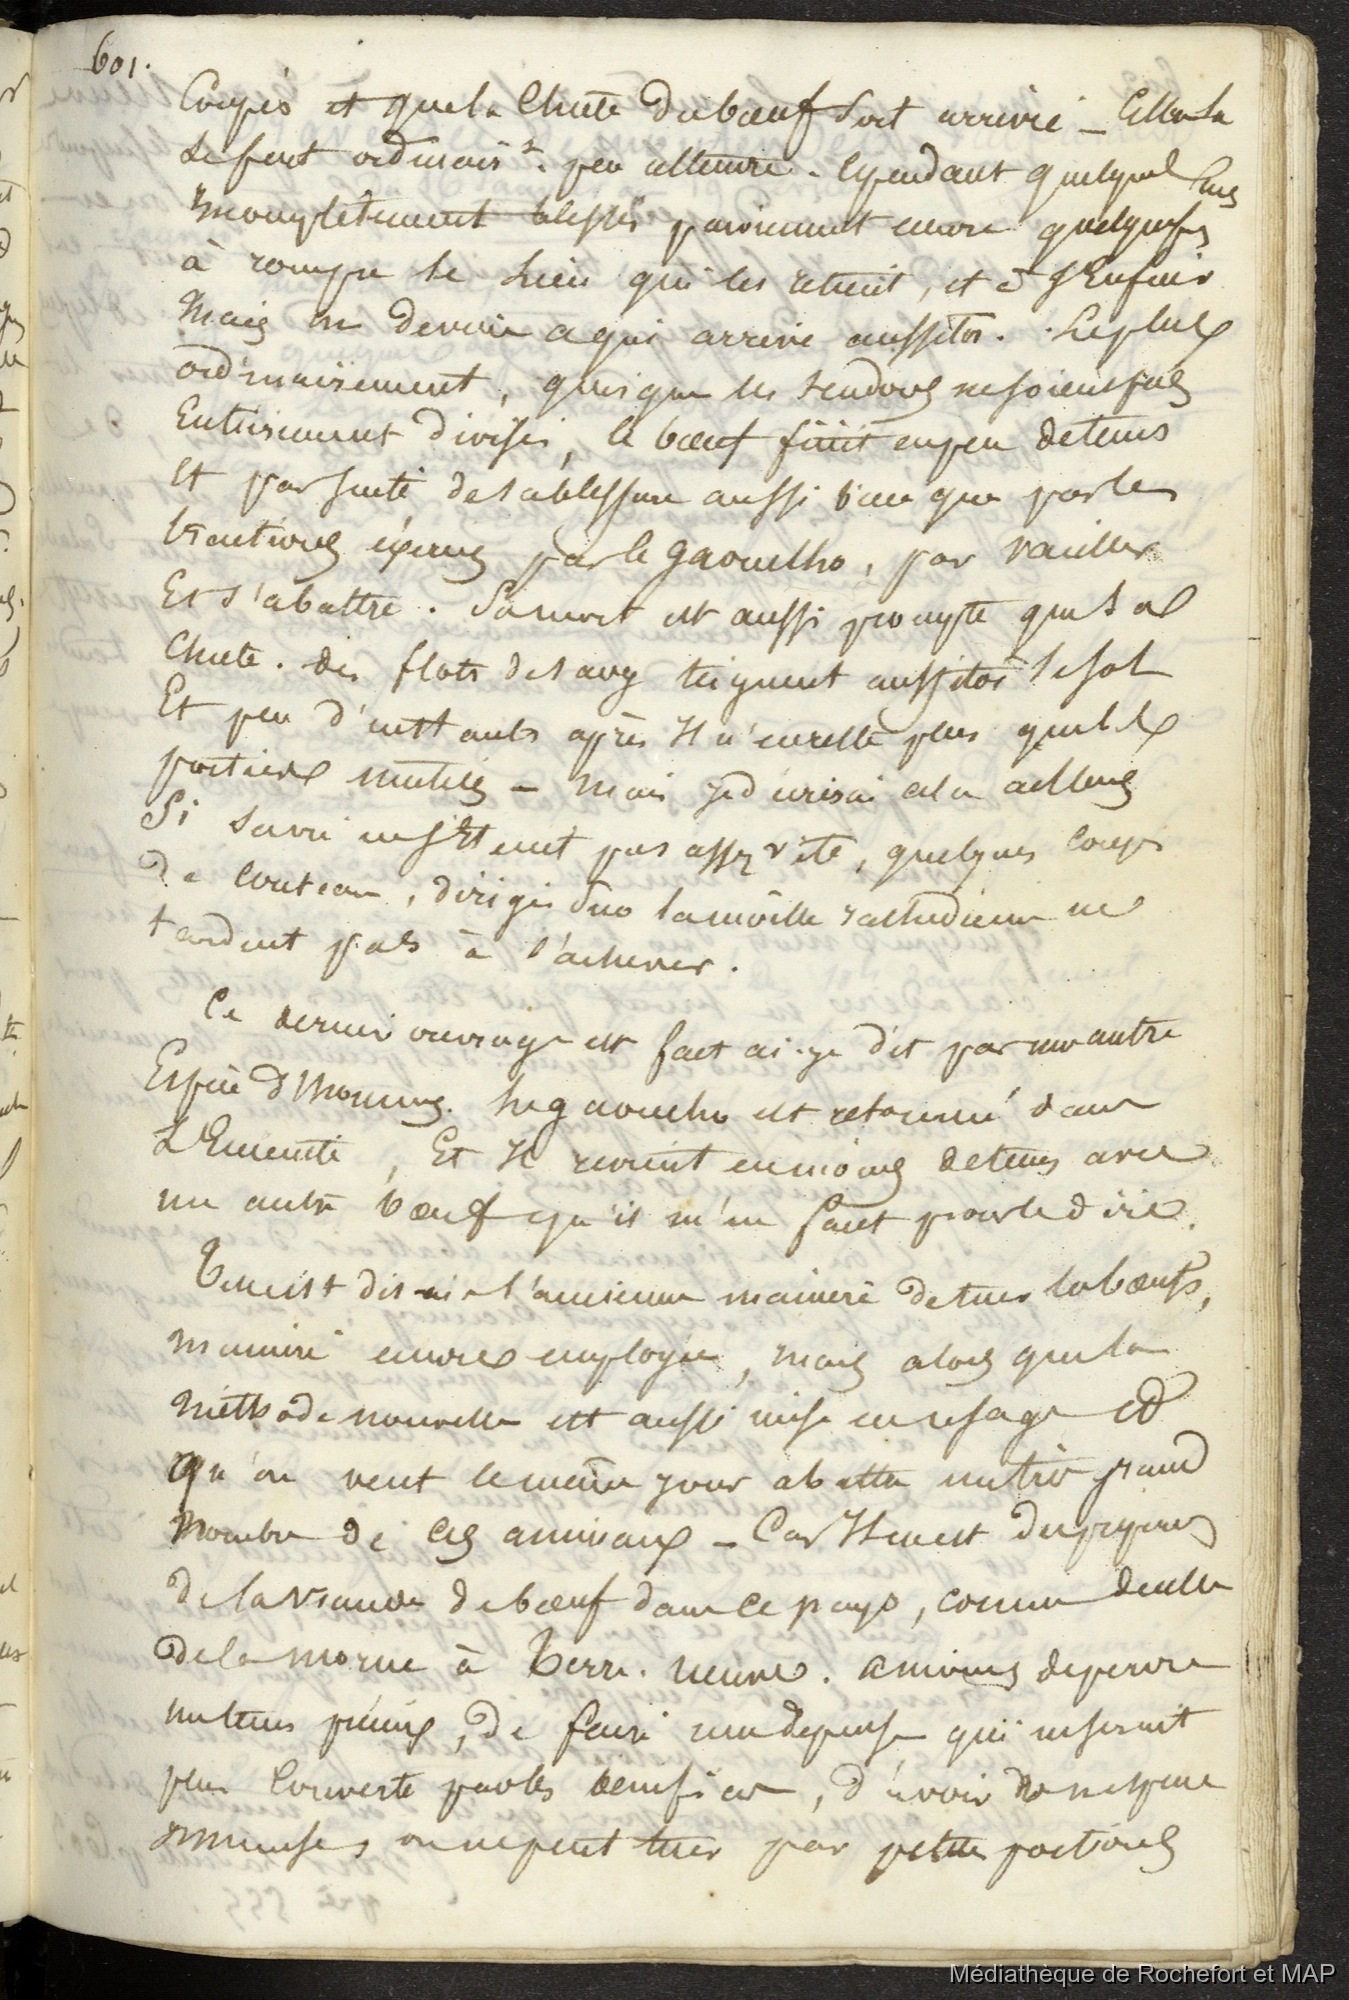 601.
Coupés et que la Chute du bœuf soit arrivée _ Celle-la
se fait ordinair.t peu attendre. Cependant quelques uns
Incomplètement blessés parviennent encore quelquefois
à rompre le lien qui les retient, et à s'Enfuir
Mais on devine ce qui arrive aussitôt. Le plus
ordinairement, quoique les tendons ne soient pas
Entièrement divisés, le bœuf finit en peu de tems
Et par suite de sa blessure aussi bien que par les
tractions exercées par le gaoucho, par vaciller
Et s'abattre. Sa mort est aussi prompte que sa
Chute. des flots de sang teignent aussitôt le sol
Et peu d'instants après Il n'en reste plus que des
portions mutilées _ mais je décrirai cela ailleurs
Si la vie ne s'Eteint pas assez vite, quelques coups
de couteau, dirigés dans la moëlle rachidienne ne
tardent pas à l'achever.
Ce dernier ouvrage est fait ai-je dit par une autre
Espèce d'Hommes. Le gaoucho est retourné dans
L'Enceinte, Et Il revient en moins de tems avec
un autre bœuf qu'il m'en faut pour le dire.
Telle est disais-je l'ancienne manière de tuer les bœufs,
manière encore employée, mais alors que la
méthode nouvelle est aussi mise en usage et
qu'on veut le même jour abattre un très grand
Nombre de ces animaux _ Car Il en est des
de la viande de bœuf dans ce pays, comme de celle
de la morue à Terre-neuve. à moins de perdre
un tems précieux, de faire une dépense qui ne serait
plus couverte par les bénéfices, d'avoir
immenses on ne peut tuer par petites portions
Médiathèque de Rochefort et MAP